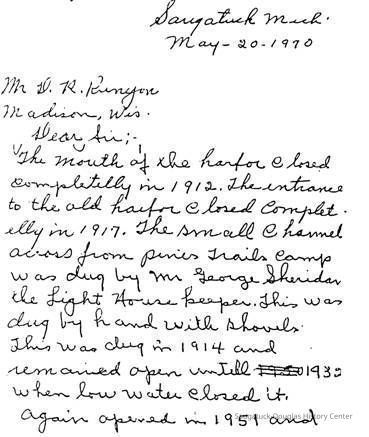 Saugatuck Mich.
May-20-1970
Mr D. R. Runyon
Madison, Wis.
Dear Sir;-
The mouth of the harfor closed
completilly in 1912. The entrance
to the old harfor closed complet.
elly in 1917. The small channel
across from pines Trails Camp
was dug by Mr George Sheridan
the Light House keeper. This was
dug by hand with shovels.
This was dug in 1914 and
remained open untill 1932
when low water closed it.
Again opened in 1951 and
Saugatuck-Douglas History Center